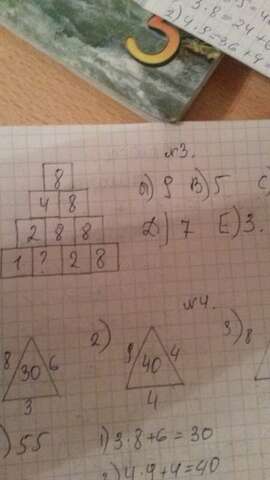 3·8=24
2) 4·9=36+4
№3.
8
4 8
2 8 8
1 ? 2 8
А) 9 В) 5 С
Д) 7 Е) 3.
№4.
8 30 6
3
2) 9 40 4
4
3) 8
) 55
1) 3·8+6=30
2) 4·9+4=40